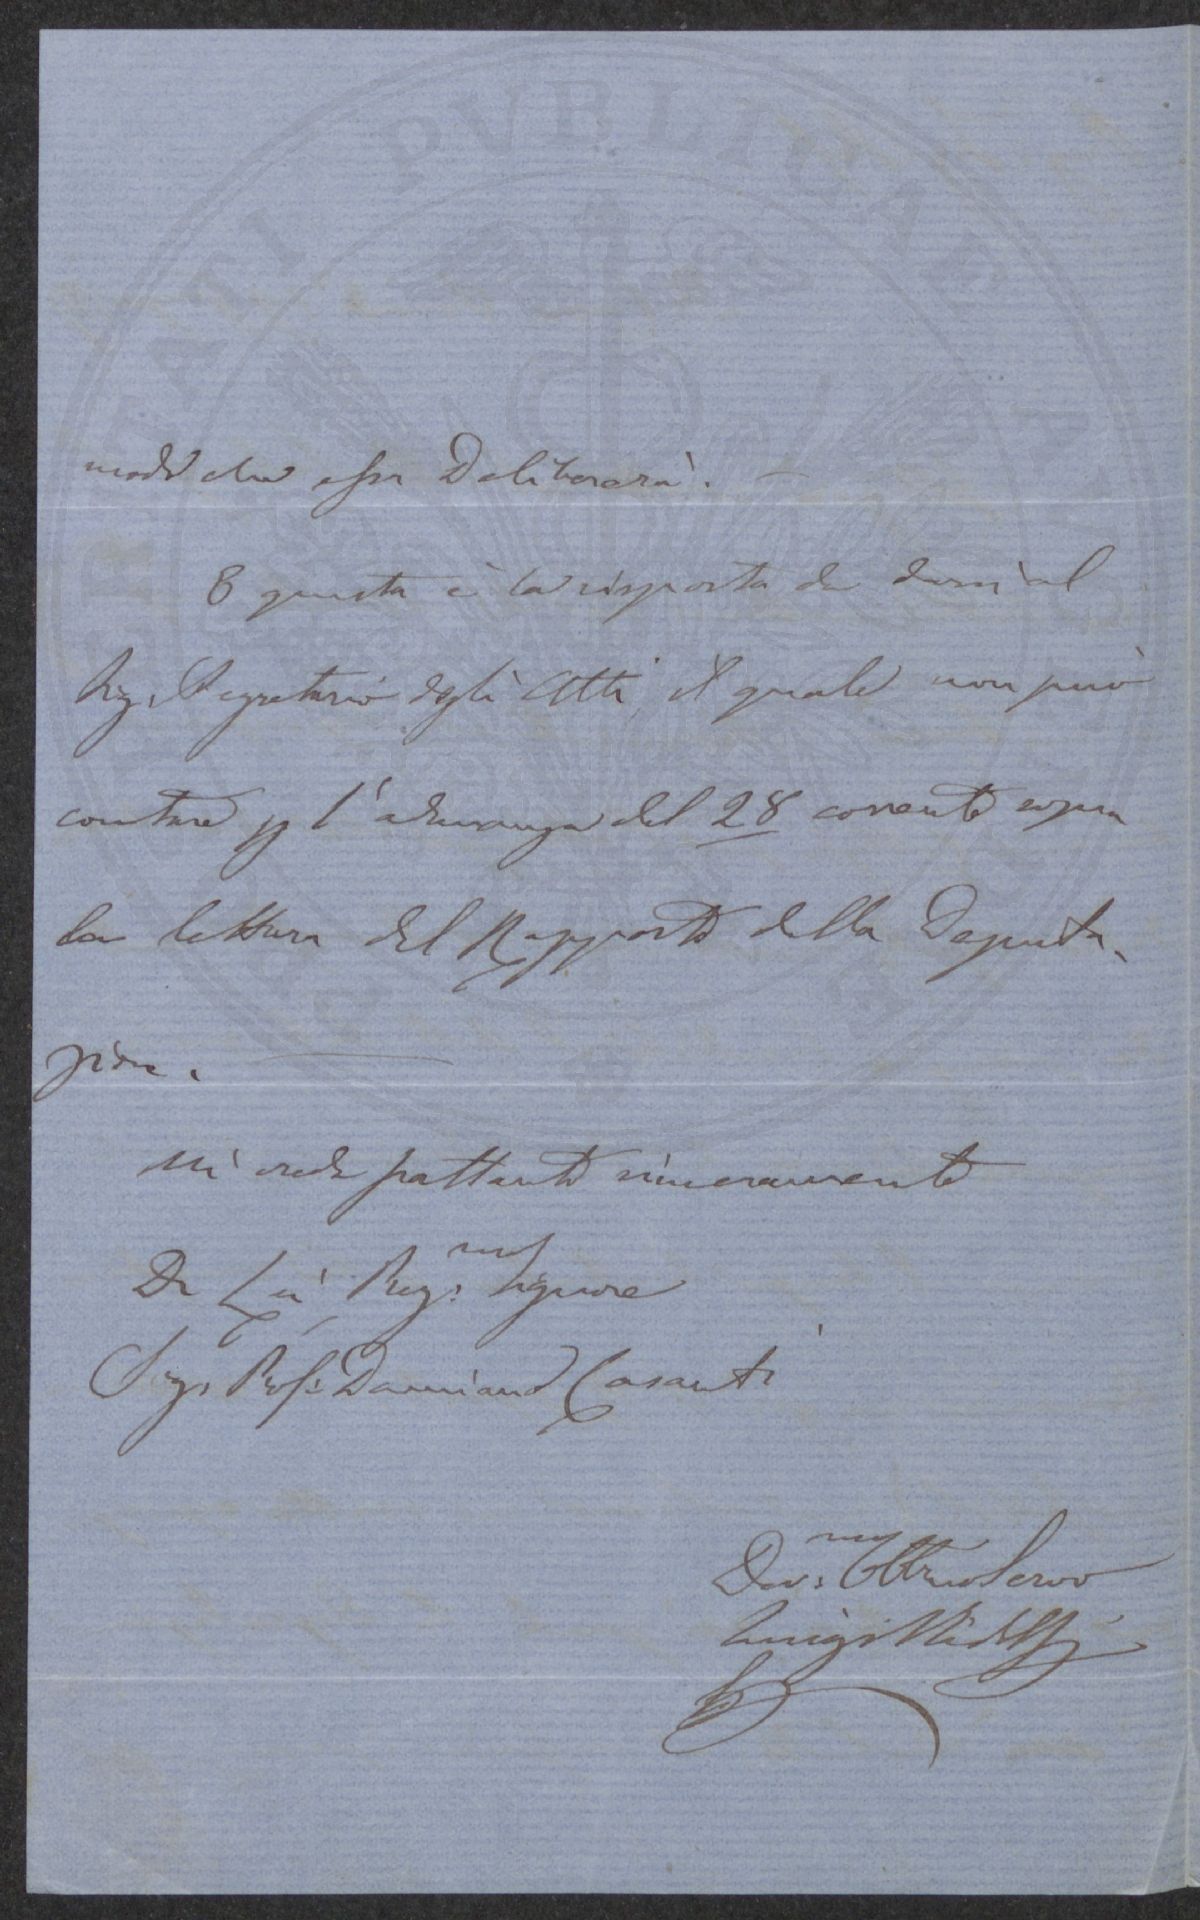 modo che essa Delibererà.
E questa è la risposta da darsi al
Sig. Segretario degli Atti, il quale non può
contare p l'adunanza del 28 corrente sopra
la lettura del Rapporto della Deputa-
zione.
Mi creda frattanto sinceramente
Di Lei Preg.mo Signore
Sig. Prof. Damiano Casanti
Dev.mo Obb.mo Servo
Luigi Ridolfi